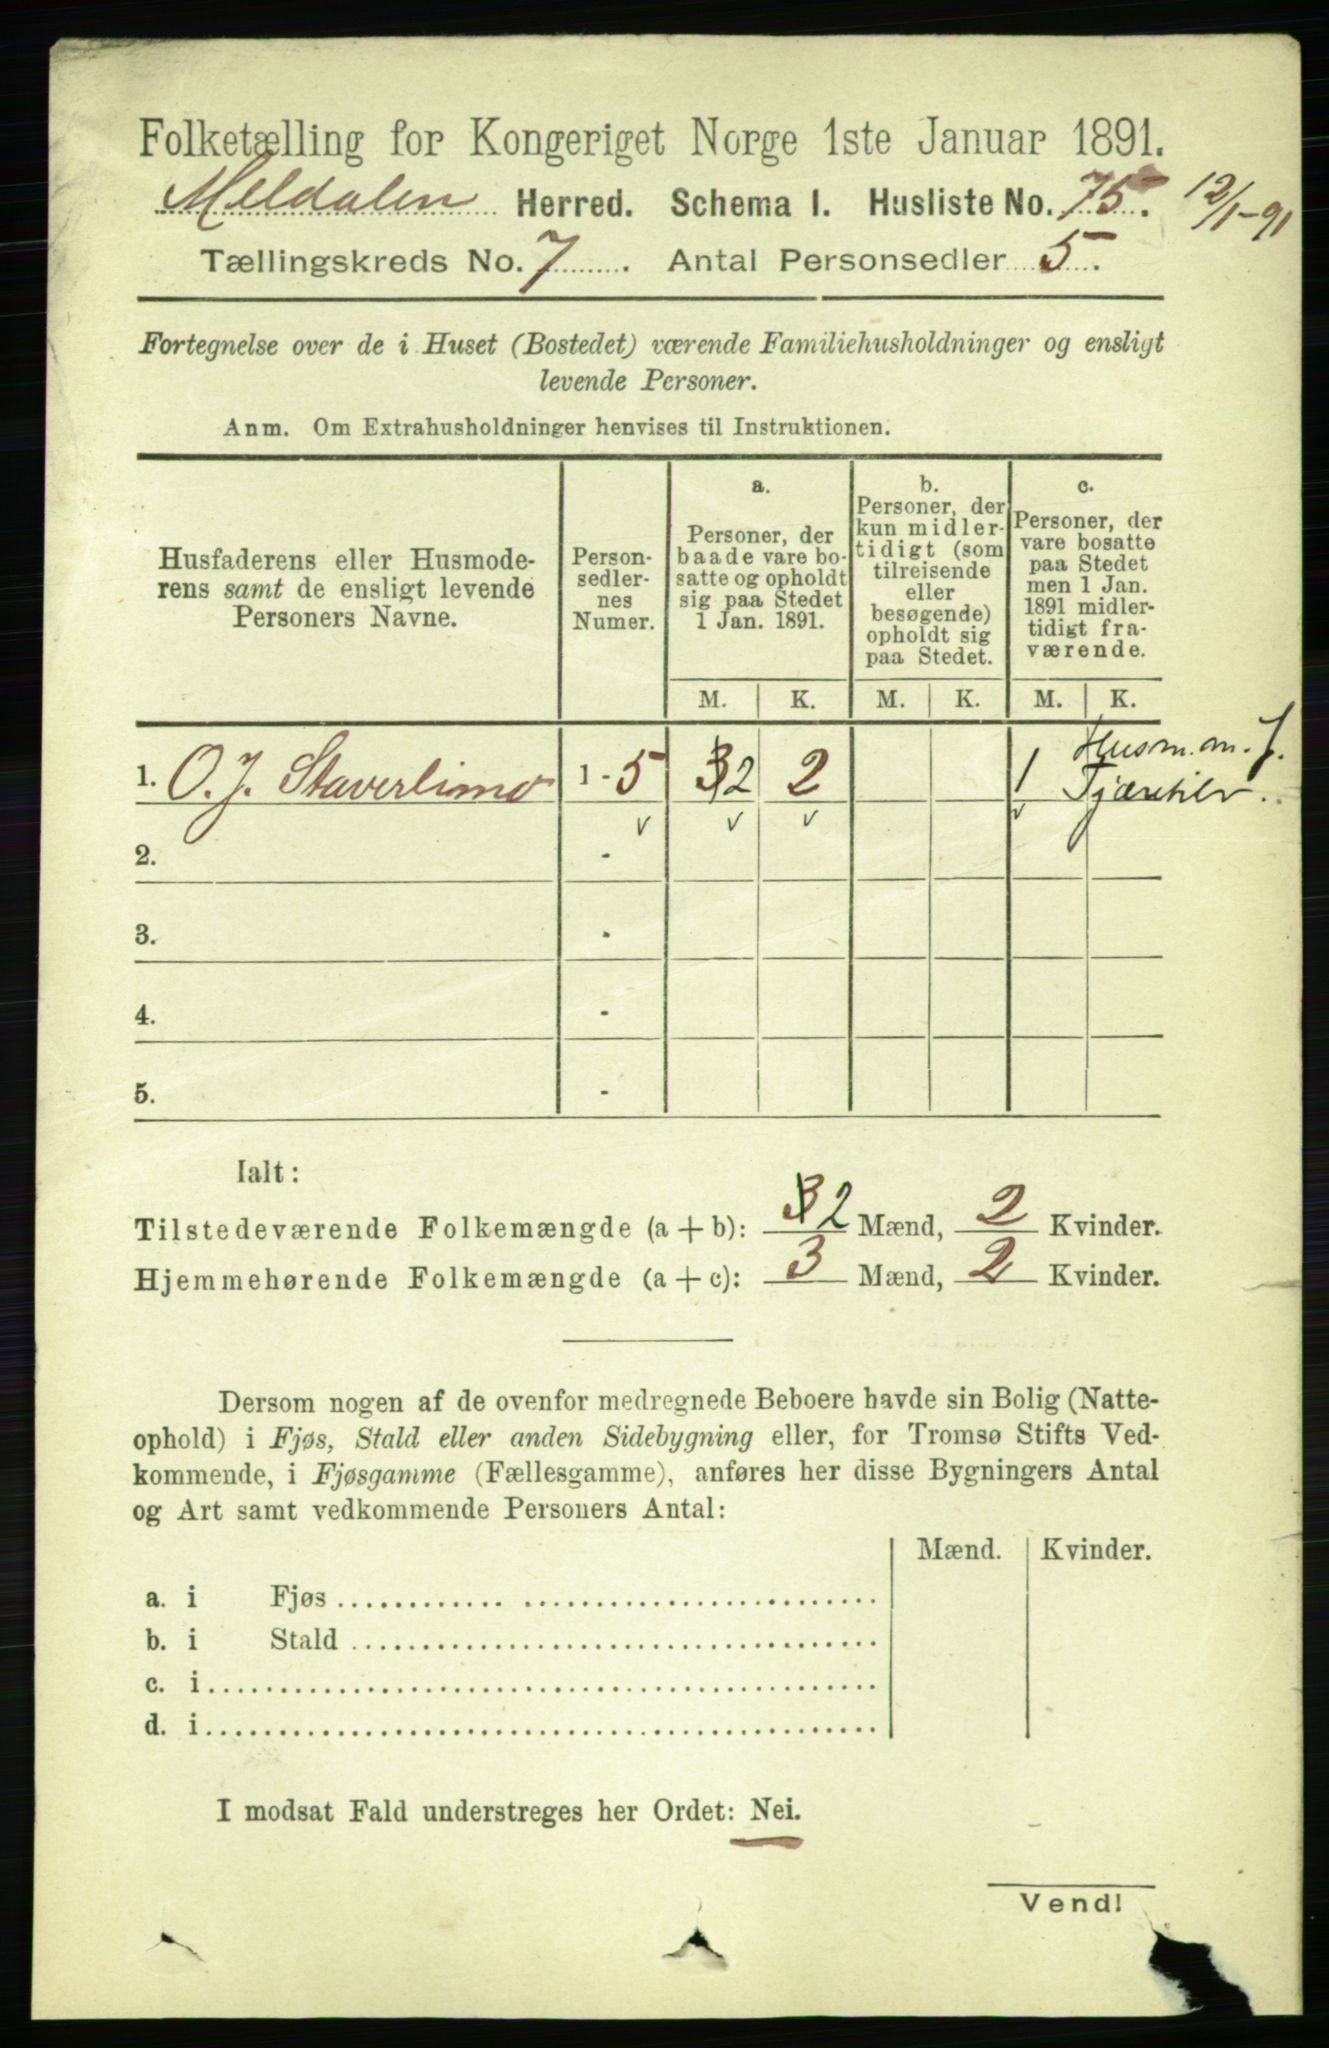 Folketælling for Kongeriget Norge 1ste Januar 1891.
Meldalen Herred. Schema I. Husliste No. 75. 12/1-91
Tællingskreds No. 7. Antal Personsedler 5.
Fortegnelse over de i Huset (Bostedet) værende Familiehusholdninger og ensligt
levende Personer.
Anm. Om Extrahusholdninger henvises til Instruktionen.
Husfaderens eller Husmode-
rens samt de ensligt levende
Personers Navne.
Person-
sedler-
nes
Numer.
a.
Personer, der
baade vare bo-
satte og opholdt
sig paa Stedet
1 Jan. 1891.
b.
Personer, der
kun midler-
tidigt (som
tilreisende
eller
besøgende)
opholdt sig
paa Stedet.
c.
Personer, der
vare bosatte
paa Stedet
men 1 Jan.
1891 midler-
tidigt fra-
værende.
M. K. M. K. M. K.
1. O. J. Staverlimo 1 - 5 3 2 2 1 Husm. m. J.
v v v v
2. -
3. -
4. -
5. -
Ialt:
Tilstedeværende Folkemængde (a + b): 3 2 Mænd, 2 Kvinder.
Hjemmehørende Folkemængde (a + c): 3 Mænd, 2 Kvinder.
Dersom nogen af de ovenfor medregnede Beboere havde sin Bolig (Natte-
ophold) i Fjøs, Stald eller anden Sidebygning eller, for Tromsø Stifts Ved-
kommende, i Fjøsgamme (Fællesgamme), anføres her disse Bygningers Antal
og Art samt vedkommende Personers Antal:
Mænd. Kvinder.
a. i Fjøs
b. i Stald
c. i
d. i
I modsat Fald understreges her Ordet: Nei.
Vend!